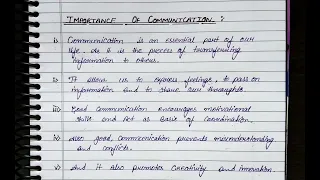 IMPORTANCE OF COMMUNICATION :
i) Communication is an essential part of our
life. As it is the process of transferring
information to others.
ii) It allows us to express feelings, to pass on
information and to share our thoughts.
iii) Good communication encourages motivational
skills and act as basis of coordination.
iv) Also good communication prevents misunderstanding
and conflicts.
v) And it also promotes creativity and innovation.